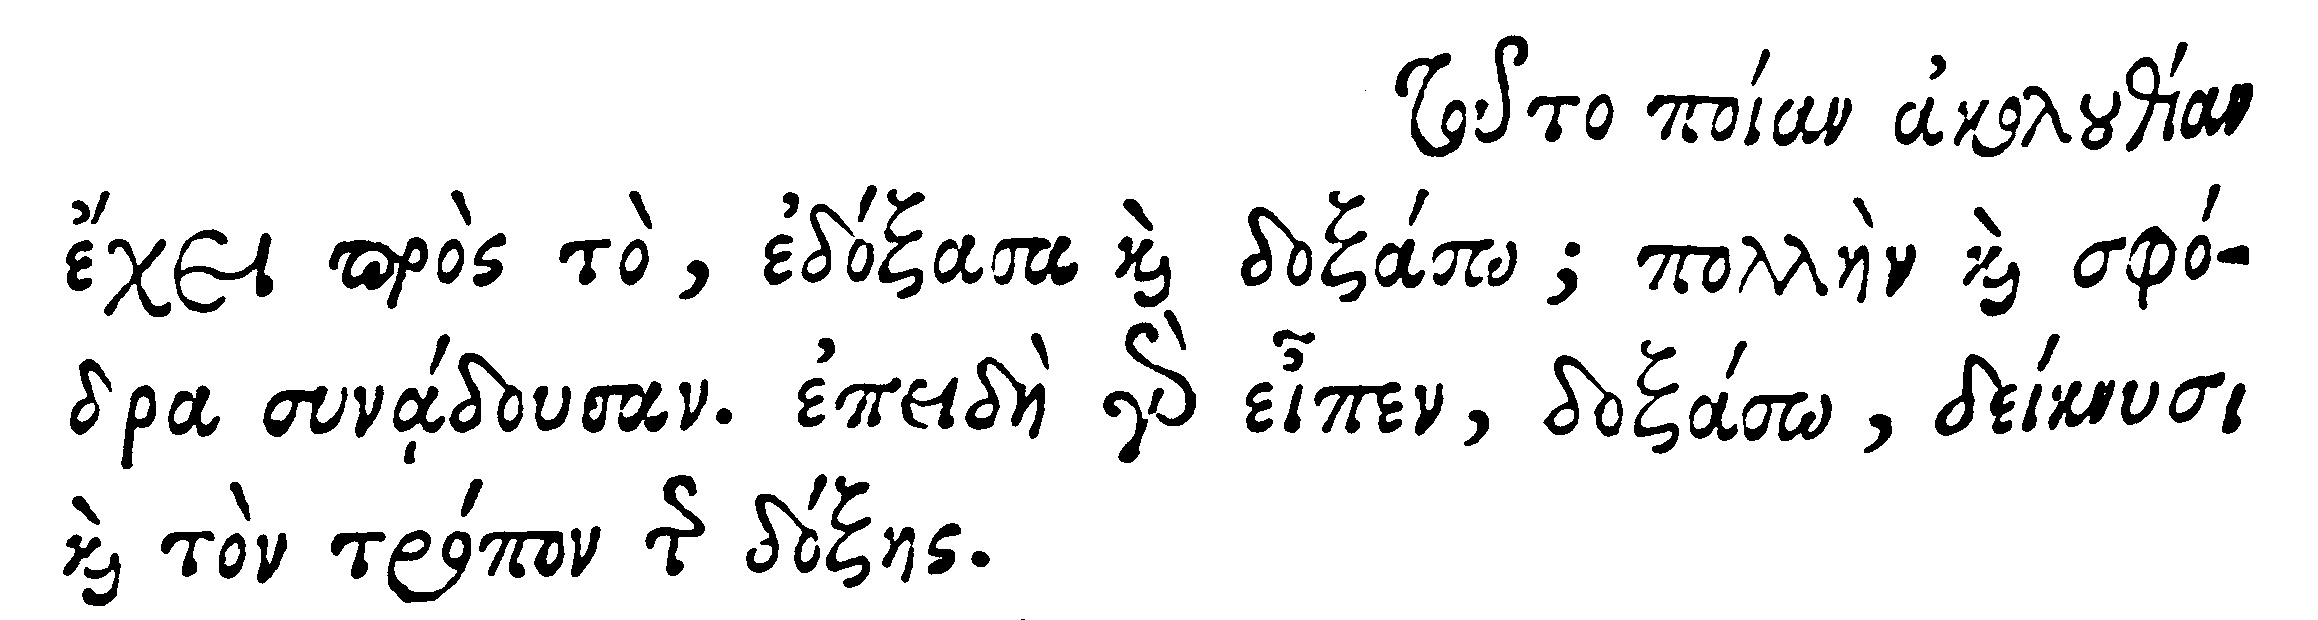 Τοῦτο ποίαν ἀκολουθίαν
ἔχει πρὸς τὸ, ἐδόξασα καὶ δοξάσω; πολλὴν καὶ σφό-
δρα συνᾴδουσαν. ἐπειδὴ γὰρ εἶπεν, δοξάσω, δείκνυσι
καὶ τὸν τρόπον τῆς δόξης.